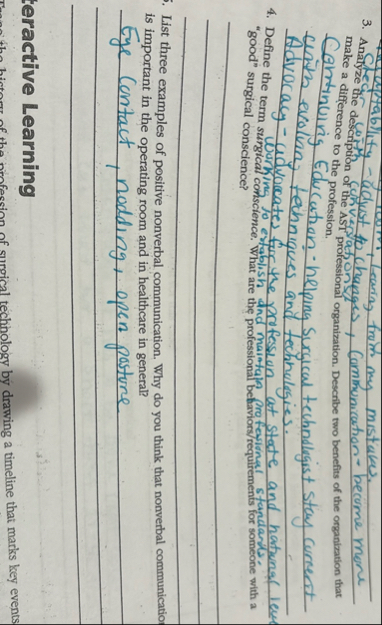 learning from my mistakes.
Adaptability - adjust to changes, Communication - become more
3. Analyze the description of the AST professional organization. Describe two benefits of the organization that
make a difference to the profession.
Continuing Education - helping surgical technologist stay current
with evolving techniques and technologies.
Advocacy - advocates for the profession at state and national leve
working to establish and maintain professional standards.
4. Define the term surgical conscience. What are the professional behaviors/requirements for someone with a
"good" surgical conscience?
5. List three examples of positive nonverbal communication. Why do you think that nonverbal communication
is important in the operating room and in healthcare in general?
Eye contact, nodding, open posture
teractive Learning
the history of the profession of surgical technology by drawing a timeline that marks key events